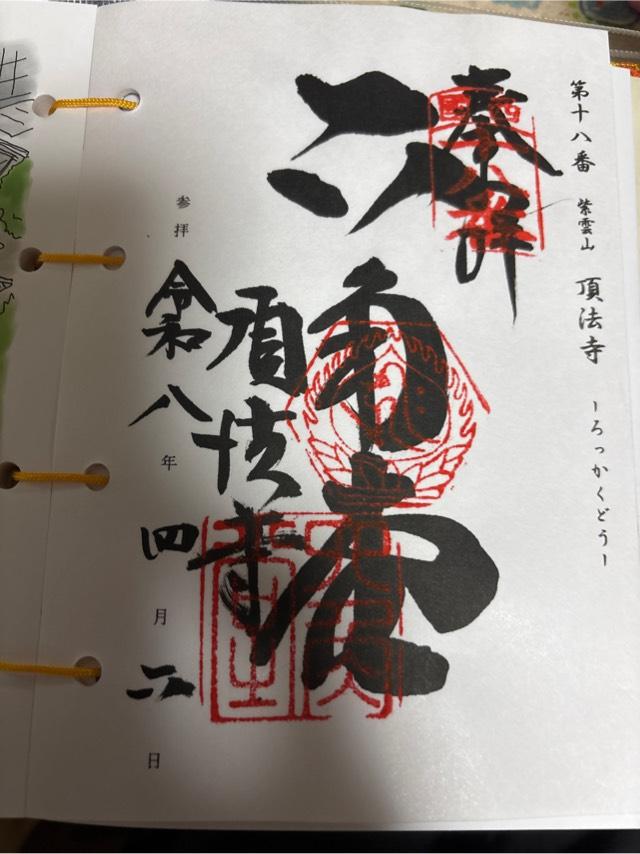 第十八番 紫雲山 頂法寺 -ろっかくどう-
奉拝
六角堂
頂法寺
参拝 令和八年四月二日